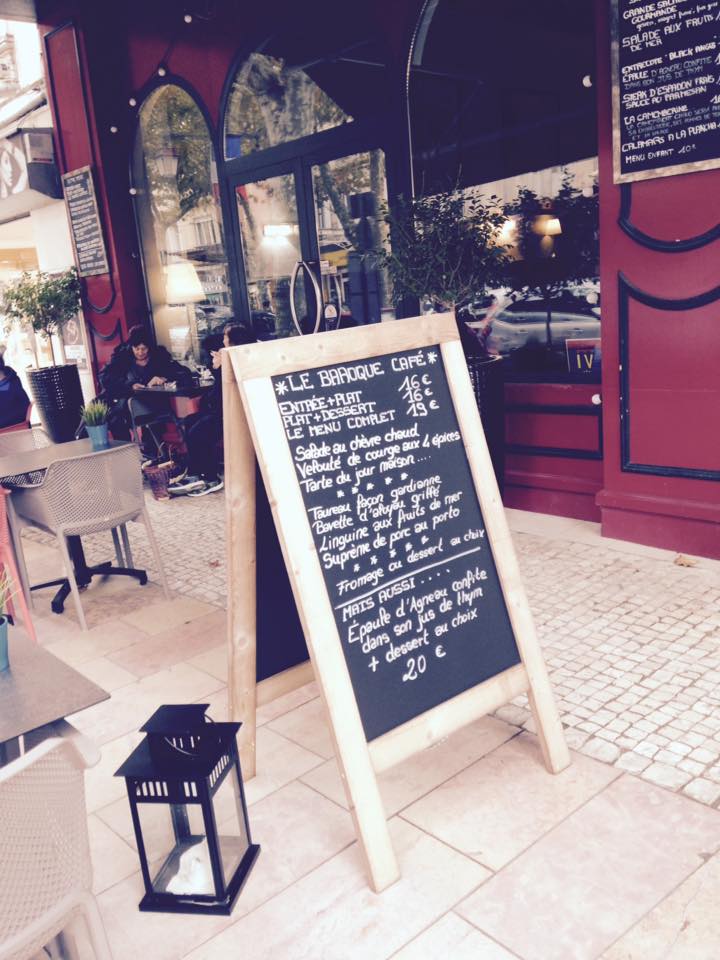 *LE BAROQUE CAFÉ*
ENTRÉE+PLAT 16 €
PLAT+DESSERT 16 €
LE MENU COMPLET 19 €
Salade au chèvre chaud
Velouté de courge aux 4 épices
Tarte du jour maison....
* * * * *
Taureau façon gardianne
Bavette d'aloyau griffé
Linguine aux fruits de mer
Suprême de porc au porto
* * * * *
Fromage ou dessert au choix
MAIS AUSSI....
Épaule d'Agneau confite
dans son jus de thym
+ dessert au choix
20 €
GRANDE SALADE
GOURMANDE
SALADE AUX FRUITS
DE MER
ENTRECOTE "BLACK ANGUS
ÉPAULE D'AGNEAU CONFITE
DANS SON JUS DE THYM
STEAK D'ESPADON FRAIS
SAUCE AU PARMESAN
LA CAMEMBERINE
CALAMARS A LA PLANCHA
MENU ENFANT 10 €
IV